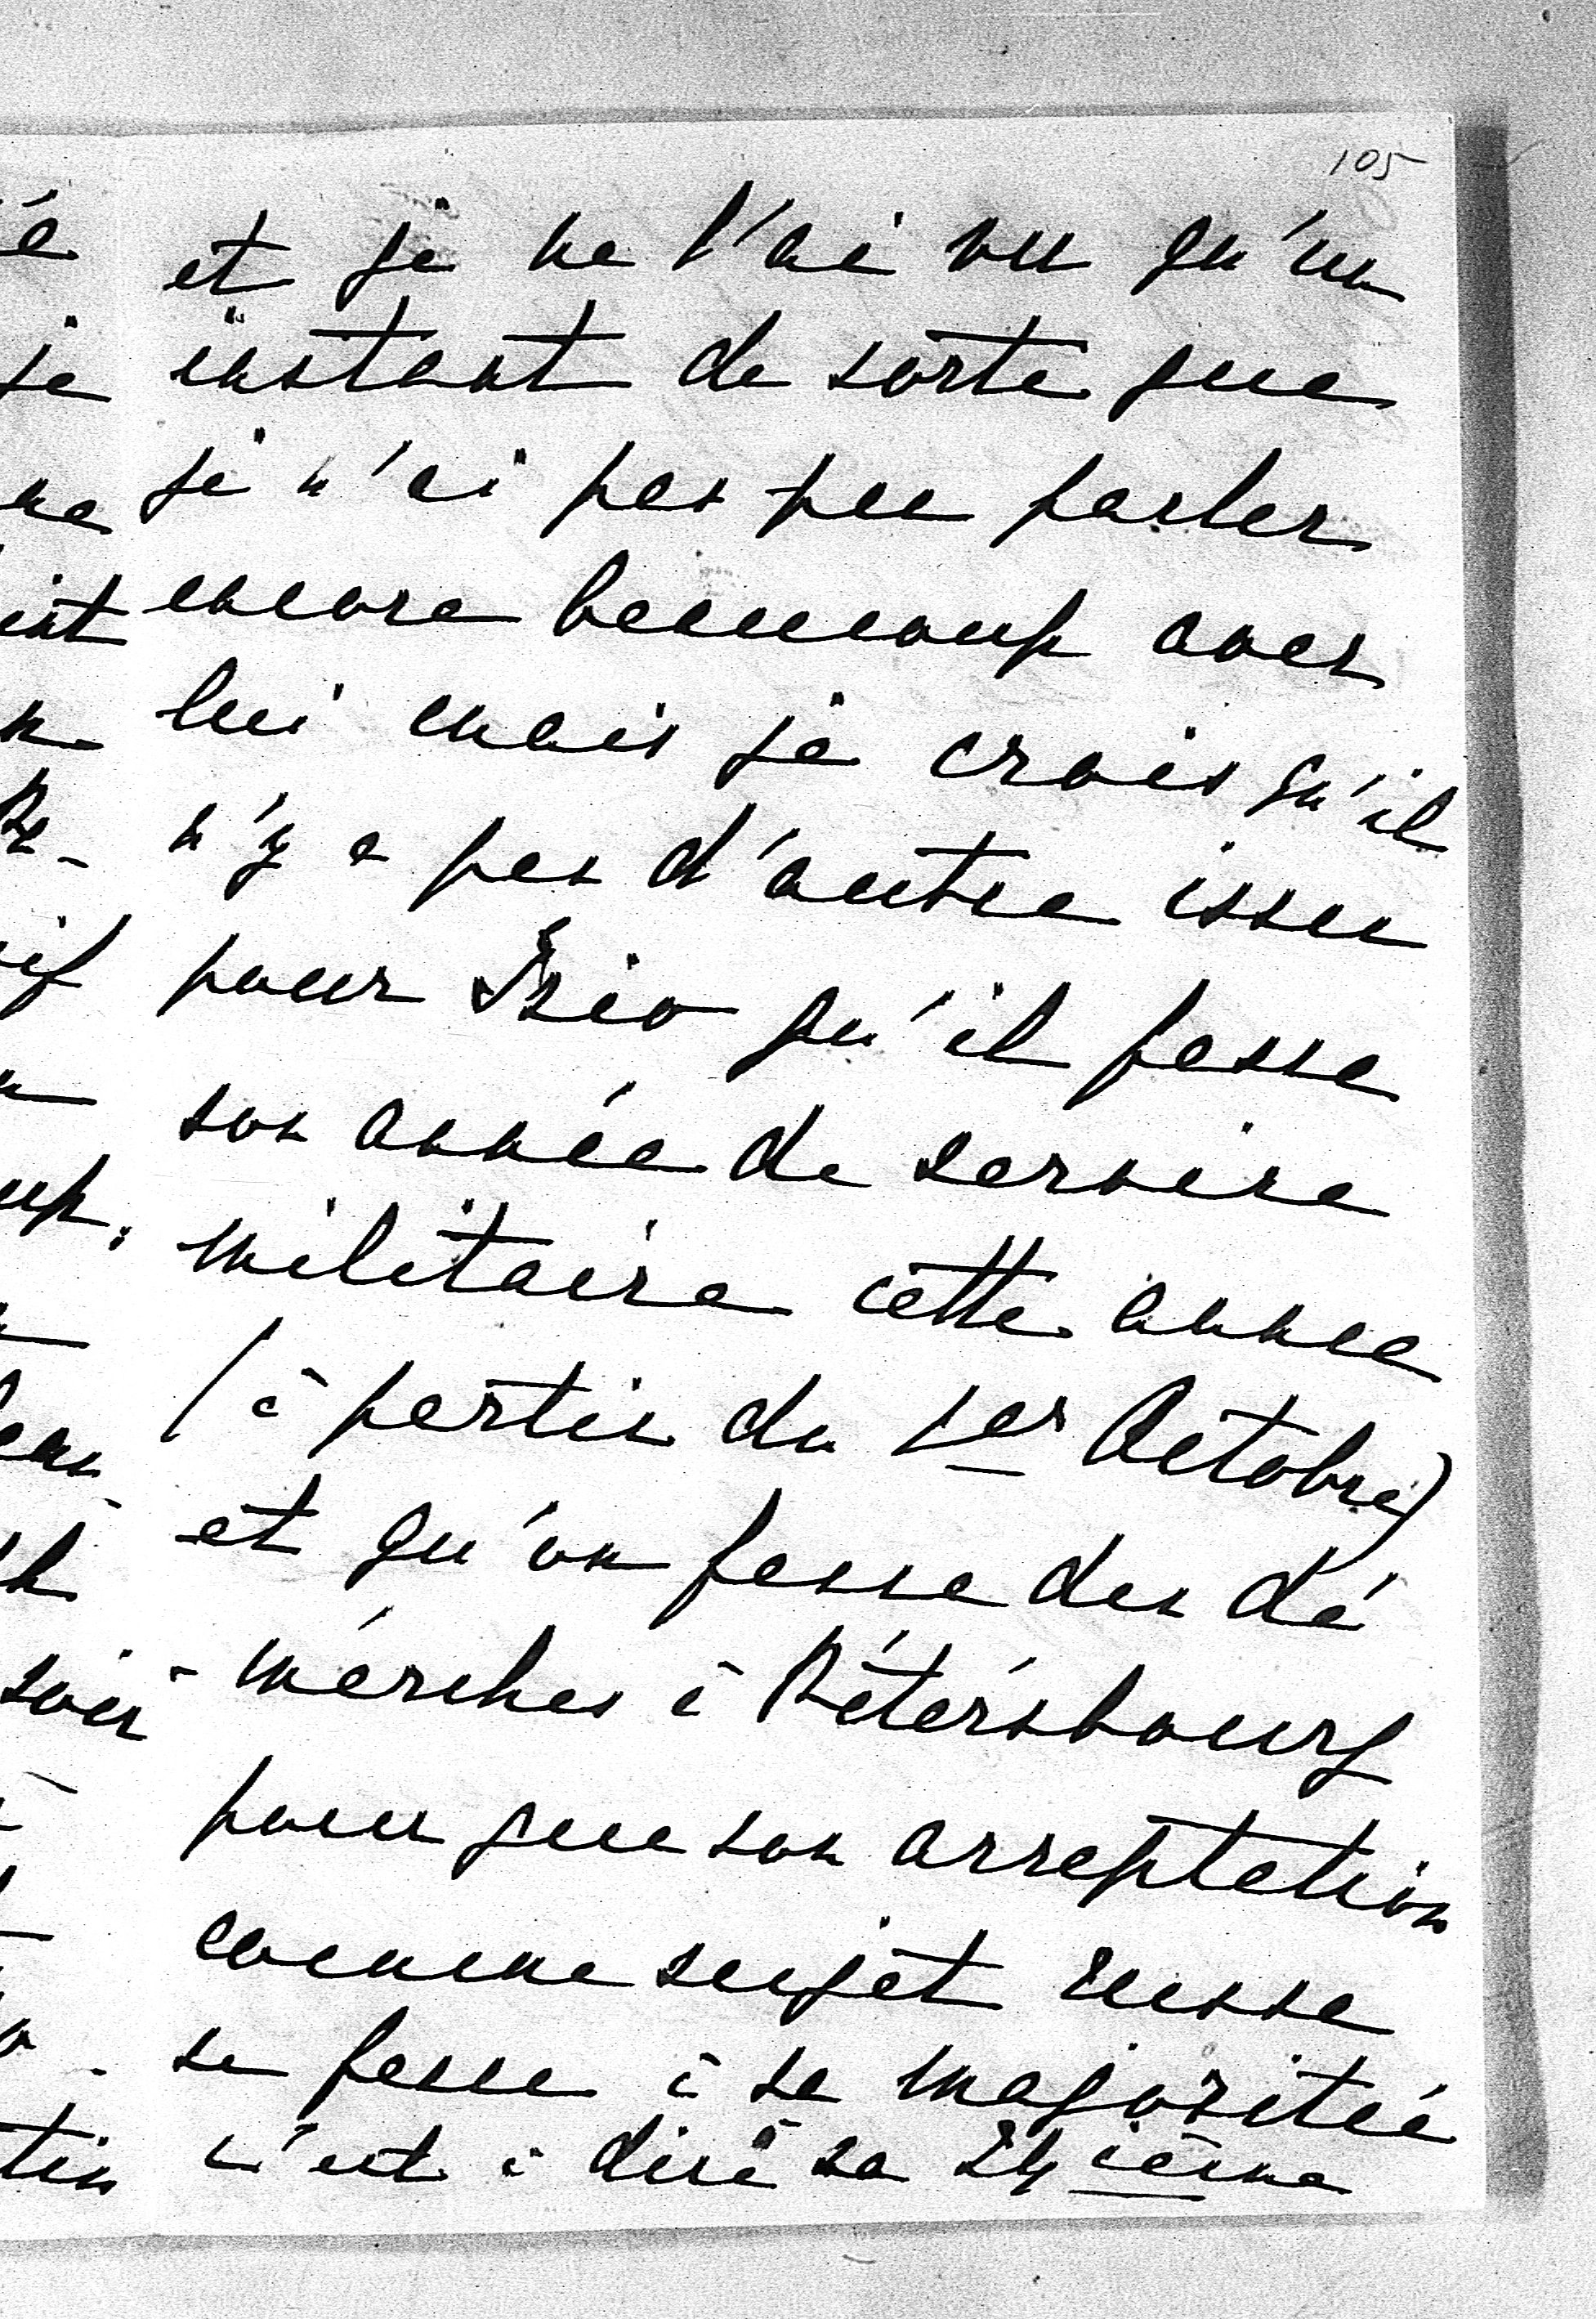 105
et je ne l'ai vu qu'un
instant de sorte que
je n'ai pas pu parler
encore beaucoup avec
lui mais je crois qu'il
n'y a pas d'autre issue
pour qu'il fasse
son année de service
militaire cette année
(à partir du 1er Octobre)
et qu'on fasse des dé
-mârches à Pétersbourg
pour que son acceptation
comme sujet russe
se fasse à sa majoritée
c'est à dire sa ième